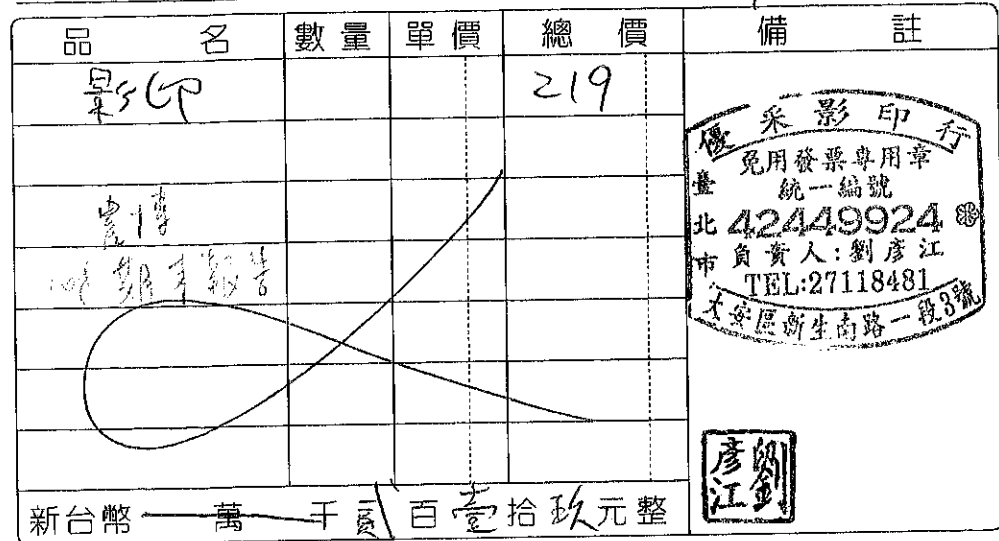 品名 數量 單價 總價 備註
影印 219
農博
期末報告
優采影印行
免用發票專用章
統一編號
臺北市
42449924
負責人:劉彥江
TEL:27118481
大安區新生南路一段3號
劉彥江
新台幣 萬 千 貳 百 壹 拾 玖 元整